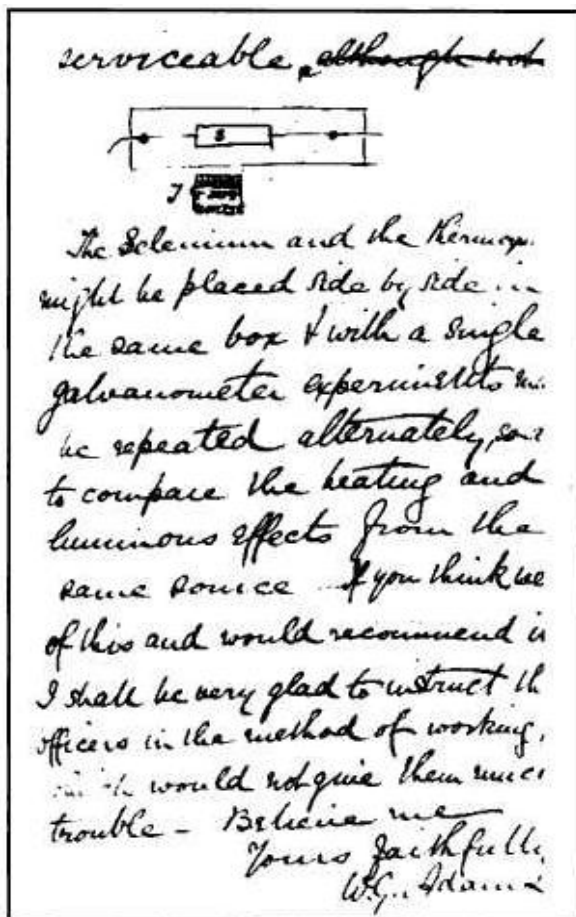 serviceable, although
S
T
The Selenium and the thermop
might be placed side by side in
the same box & with a single
galvanometer experiments
be repeated alternately, so
to compare the heating and
luminous effects from the
same source If you think we
of this and would recommend i
I shall be very glad to instruct th
officers in the method of working,
would not give them muc
trouble - Believe me
Yours faithfully
W.G. Adams